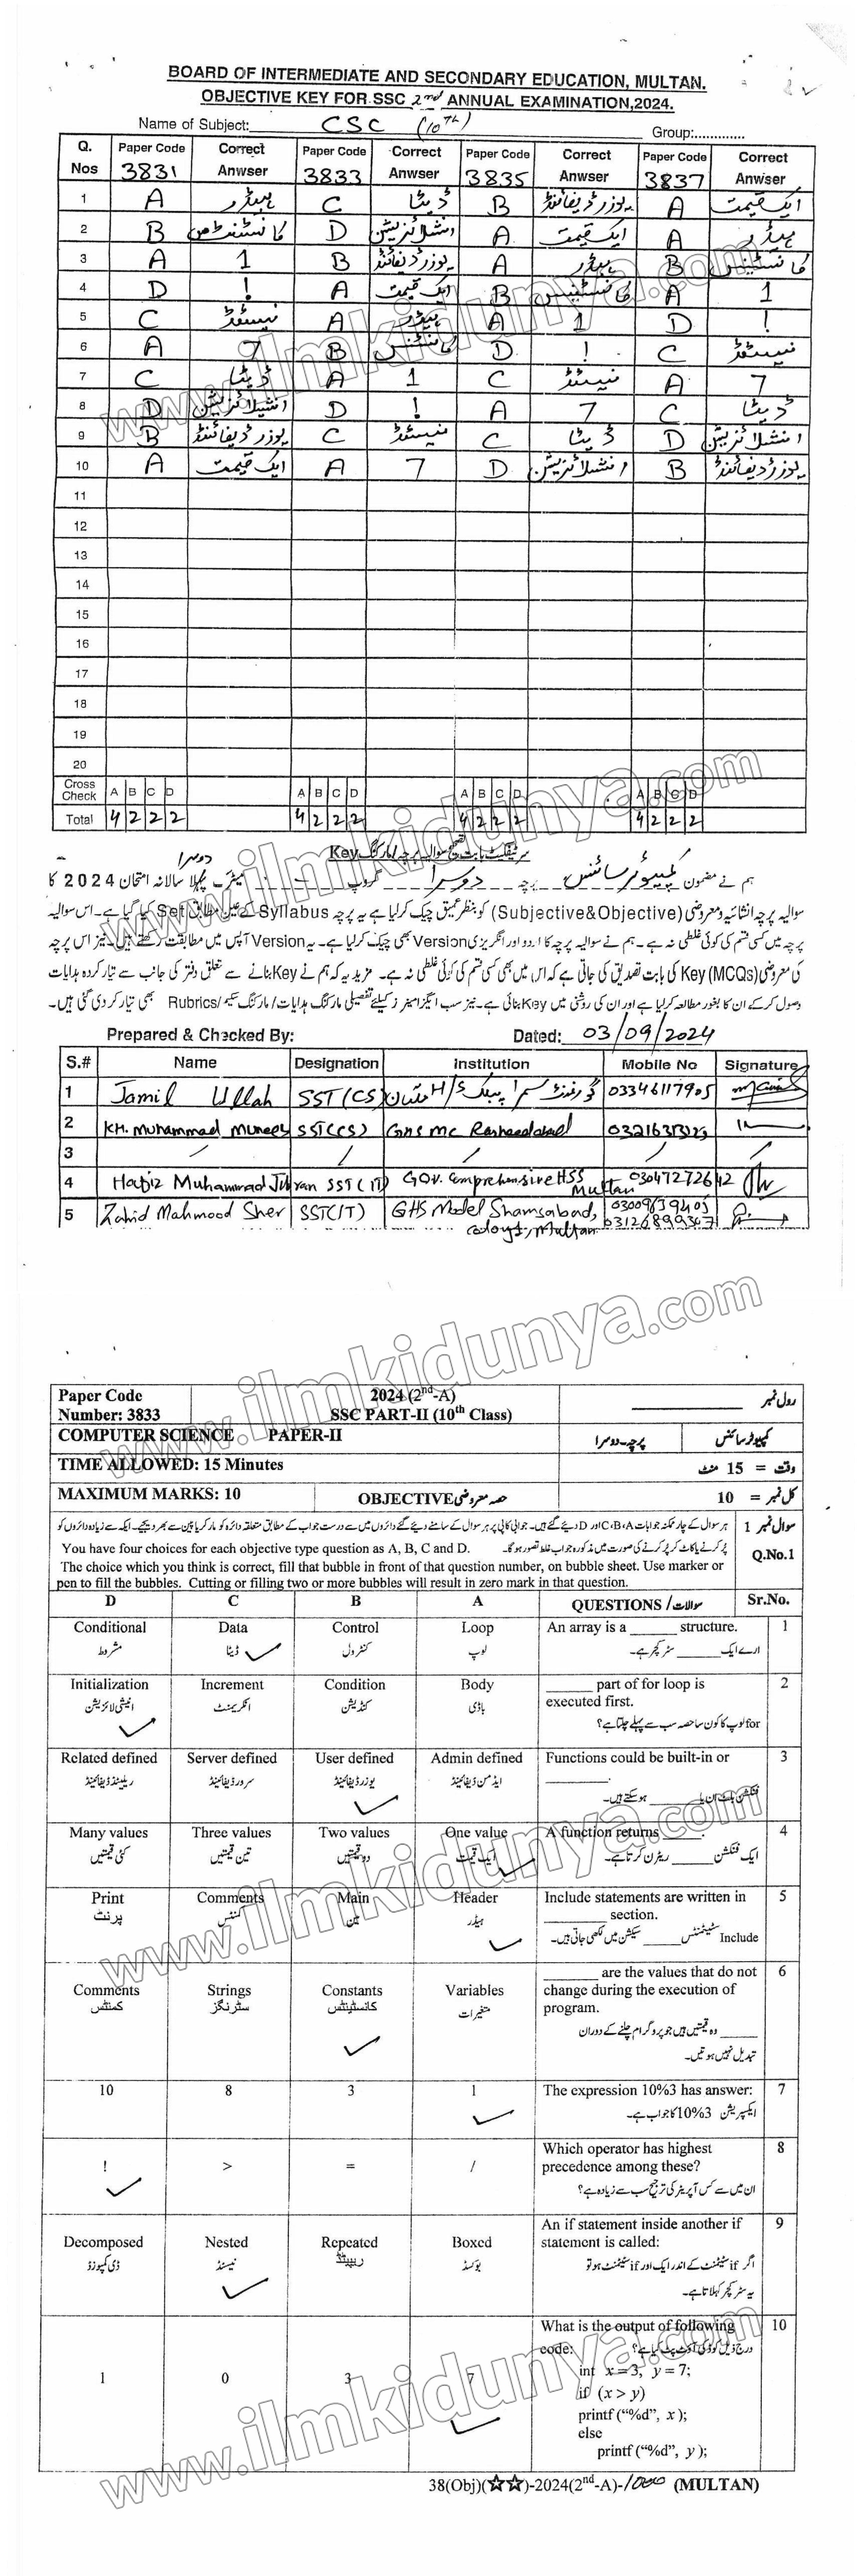 BOARD OF INTERMEDIATE AND SECONDARY EDUCATION, MULTAN.
OBJECTIVE KEY FOR SSC 2nd ANNUAL EXAMINATION,2024.
Name of Subject: CSC (10Th) Group:.............
Q. Nos Paper Code 3831 Correct Anwser Paper Code 3833 Correct Anwser Paper Code 3835 Correct Anwser Paper Code 3837 Correct Anwser
1 A ہیڈر C ڈیٹا B یوزر ڈیفائنڈ A ایک قیمت
2 B کانسٹنٹس D انشلائزیشن A ایک قیمت A ہیڈر
3 A 1 B یوزر ڈیفائنڈ A ہیڈر B کانسٹینٹس
4 D ! A ایک قیمت B کانسٹینٹس A 1
5 C نیسٹڈ A ہیڈر A 1 D !
6 A 7 B کانسٹنٹس D ! C نیسٹڈ
7 C ڈیٹا A 1 C نیسٹڈ A 7
8 D انشیلائزیشن D ! A 7 C ڈیٹا
9 B یوزر ڈیفائنڈ C نیسٹڈ C ڈیٹا D انشلائزیشن
10 A ایک قیمت A 7 D انشلائزیشن B یوزر ڈیفائنڈ
11
12
13
14
15
16
17
18
19
20
Cross Check A B C D A B C D A B C D A B C D
Total 4 2 2 2 4 2 2 2 4 2 2 2 4 2 2 2
سرٹیفکیٹ بابت تصحیح سوالیہ پرچہ/مارکنگ Key
دوسرا
ہم نے مضمون کمپیوٹر سائنس پرچہ دوسرا گروپ میٹرک پہلا سالانہ امتحان 2024 کا
سوالیہ پرچہ انشائیہ و معروضی (Subjective&Objective) کو بنظر عمیق چیک کر لیا ہے یہ پرچہ Syllabus کے عین مطابق Set کیا گیا ہے۔ اس سوالیہ
پرچہ میں کسی قسم کی کوئی غلطی نہ ہے۔ ہم نے سوالیہ پرچہ کا اردو اور انگریزی Version بھی چیک کر لیا ہے۔ یہ Version آپس میں مطابقت رکھتے ہیں۔ نیز اس پرچہ
کی معروضی (MCQs) Key کی بابت تصدیق کی جاتی ہے کہ اس میں بھی کسی قسم کی کوئی غلطی نہ ہے۔ مزید یہ کہ ہم نے Key بنانے سے متعلق دفتر کی جانب سے تیار کردہ ہدایات
وصول کر کے ان کا بغور مطالعہ کر لیا ہے اور ان کی روشنی میں Key بنائی ہے۔ نیز سب ایگزامینرز کیلئے تفصیلی مارکنگ ہدایات/مارکنگ سکیم/Rubrics بھی تیار کر دی گئی ہیں۔
Prepared & Checked By: Dated: 03/09/2024
S.# Name Designation Institution Mobile No Signature
1 Jamil Ullah SST(CS) 03346117905
2 KH. Muhammad Muneeb SST(CS) GHS MC Rasheedabad
3
4 Hafiz Muhammad SST(IT) Gov. Comprehensive HSS Multan 03047272642
5 Zahid Mahmood Sher SST(IT) GHS Model Shamsabad, Multan
Paper Code 2024 (2nd-A) رول نمبر
Number: 3833 SSC PART-II (10th Class)
COMPUTER SCIENCE PAPER-II پرچہ-دوسرا کمپیوٹر سائنس
TIME ALLOWED: 15 Minutes وقت = 15 منٹ
MAXIMUM MARKS: 10 OBJECTIVE حصہ معروضی کل نمبر = 10
سوال نمبر 1 ہر سوال کے چار ممکنہ جوابات C،B،A اور D دیئے گئے ہیں۔ جوابی کاپی پر ہر سوال کے سامنے دیئے گئے دائروں میں سے درست جواب کے مطابق متعلقہ دائرہ کو مارکر یا پین سے بھر دیجئے۔ ایک سے زیادہ دائروں کو
You have four choices for each objective type question as A, B, C and D. پُر کرنے یا کاٹ کر پُر کرنے کی صورت میں مذکورہ جواب غلط تصور ہو گا۔ Q.No.1
The choice which you think is correct, fill that bubble in front of that question number, on bubble sheet. Use marker or
pen to fill the bubbles. Cutting or filling two or more bubbles will result in zero mark in that question.
D C B A QUESTIONS / سوالات Sr.No.
Conditional Data Control Loop An array is a ______ structure. 1
مشروط ڈیٹا کنٹرول لوپ ارے ایک ______ سٹرکچر ہے۔
Initialization Increment Condition Body ______ part of for loop is 2
executed first.
انیشی لائزیشن انکریمنٹ کنڈیشن باڈی
for لوپ کا کون سا حصہ سب سے پہلے چلتا ہے؟
Related defined Server defined User defined Admin defined Functions could be built-in or 3
________.
ریلیٹڈ ڈیفائینڈ سرور ڈیفائینڈ یوزر ڈیفائینڈ ایڈمن ڈیفائینڈ
فنکشن بلٹ ان یا ______ ہو سکتے ہیں۔
Many values Three values Two values One value A function returns _____. 4
کئی قیمتیں تین قیمتیں دو قیمتیں ایک قیمت ایک فنکشن ______ ریٹرن کرتا ہے۔
Print Comments Main Header Include statements are written in 5
________ section.
پرنٹ کمنٹس مین ہیڈر
Include سٹیٹمنٹس ______ سیکشن میں لکھی جاتی ہیں۔
______ are the values that do not 6
Comments Strings Constants Variables change during the execution of
program.
کمنٹس سٹرنگز کانسٹینٹس متغیرات
______ وہ قیمتیں ہیں جو پروگرام چلنے کے دوران
تبدیل نہیں ہوتیں۔
10 8 3 1 The expression 10%3 has answer: 7
ایکسپریشن 10%3 کا جواب ہے۔
Which operator has highest 8
! > = / precedence among these?
ان میں سے کس آپریٹر کی ترجیح سب سے زیادہ ہے؟
An if statement inside another if 9
Decomposed Nested Repeated Boxed statement is called:
ڈی کمپوزڈ نیسٹڈ ریپیٹڈ بوکسڈ
اگر if سٹیٹمنٹ کے اندر ایک اور if سٹیٹمنٹ ہو تو
یہ سٹرکچر کہلاتا ہے۔
What is the output of following 10
code: درج ذیل کوڈ کی آؤٹ پٹ کیا ہے؟
1 0 3 7 int x = 3, y = 7;
if (x > y)
printf (“%d”, x );
else
printf (“%d”, y );
38(Obj)(☆☆)-2024(2nd-A)-1000 (MULTAN)
www.ilmkidunya.com
www.ilmkidunya.com
www.ilmkidunya.com
www.ilmkidunya.com
www.ilmkidunya.com